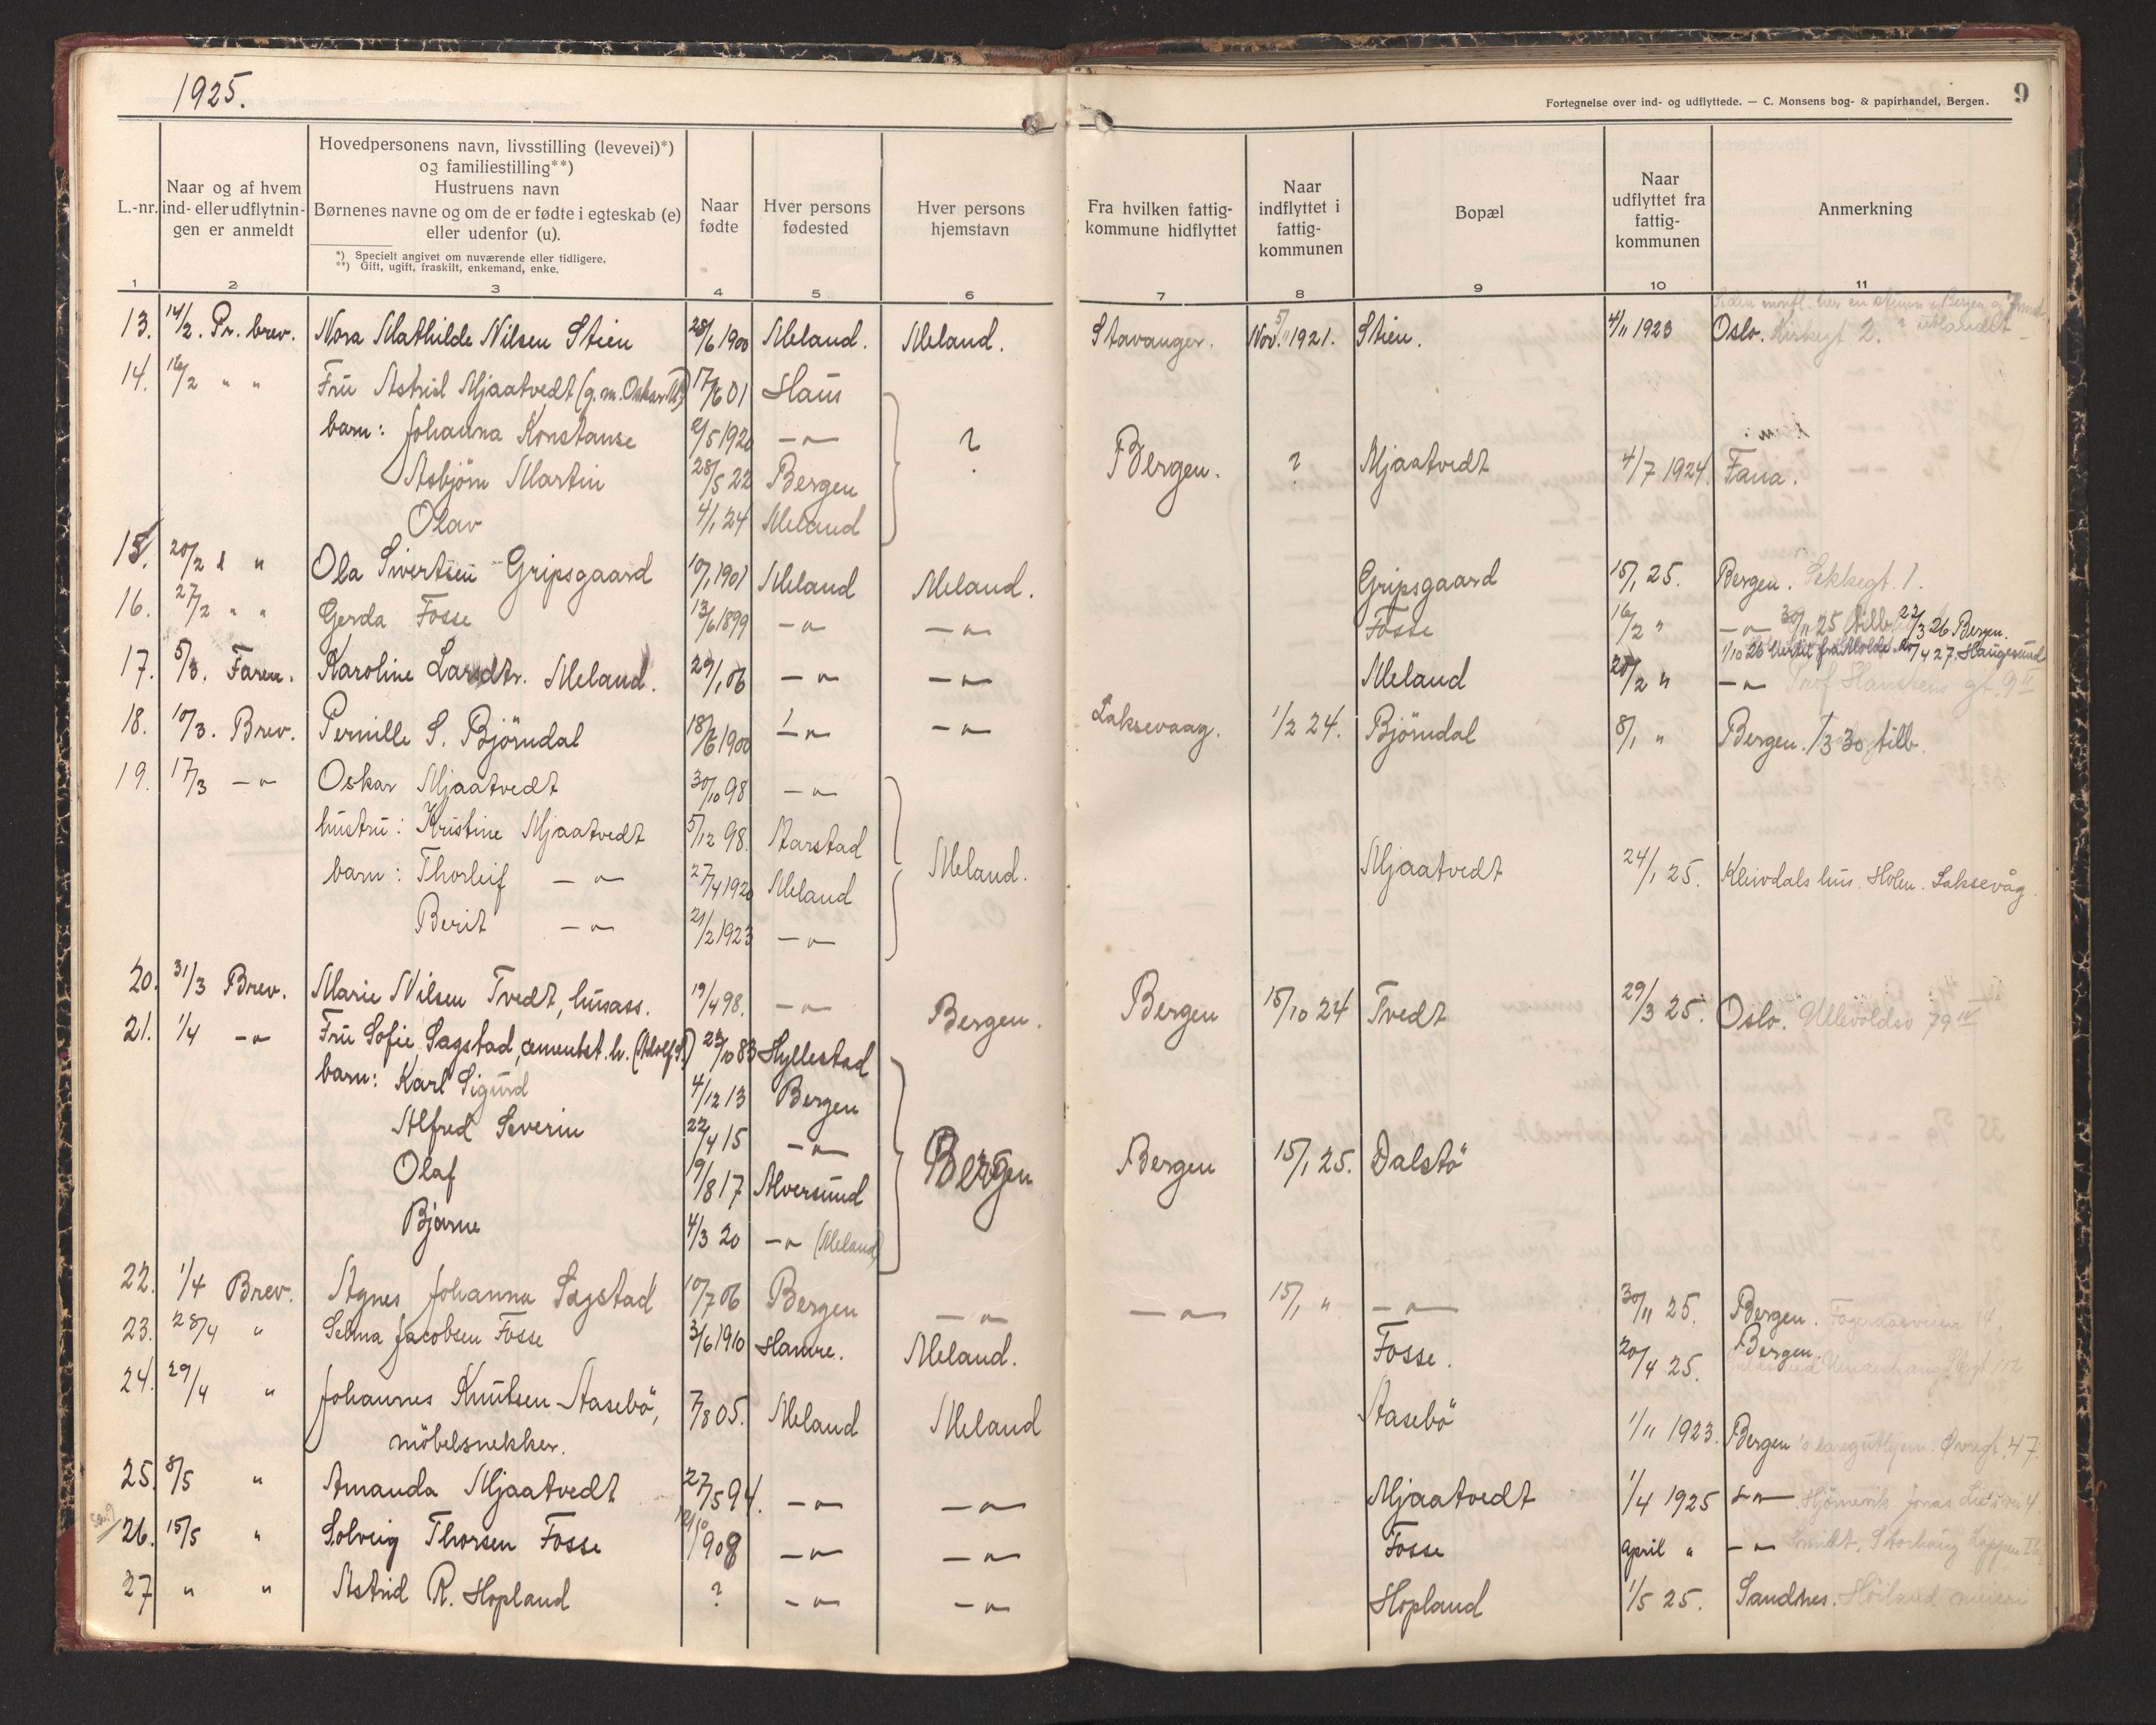 1925.
9
Fortegnelse over ind- og udflyttede. — C. Monsens bog- & papirhandel, Bergen.
L.-nr.
Naar og af hvem ind- eller udflytnin- gen er anmeldt
Hovedpersonens navn, livsstilling (levevei)*) og familiestilling**)
Hustruens navn
Børnenes navne og om de er fødte i egteskab (e) eller udenfor (u).
*) Specielt angivet om nuværende eller tidligere.
**) Gift, ugift, fraskilt, enkemand, enke.
Naar fødte
Hver persons fødested
Hver persons hjemstavn
Fra hvilken fattig- kommune hidflyttet
Naar indflyttet i fattig- kommunen
Bopæl
Naar udflyttet fra fattig- kommunen
Anmerkning
1 2 3 4 5 6 7 8 9 10 11
13. 14/2. Pr. brev. Nora Mathilde Nilsen Stien 28/6 1900 Meland. Meland. Stavanger. Nov. 5/11 1921. Stien. 4/11 1923 Oslo. Kirkegt 2.
14. 16/2 " " Fru Astrid Mjaatvedt (g.m. Oskar M.) 17/6 01 Haus
barn: Johanna Konstanse 2/5 1920 —"— ?
Asbjörn Martin 28/5 22 Bergen Bergen. ? Mjaatvedt 4/7 1924. Fana.
Olav 4/1 24 Meland
15. 20/2 " " Ola Sivertsen Gripsgaard 10/1 1901 Meland Meland. Gripsgaard 15/1 25. Bergen.
16. 27/2 " " Gerda Fosse 13/6 1899 —"— —"— Fosse 16/2 " —"— 30/11 25 tilb. 22/3 26 Bergen.
1/10 26 fra Molde 4 27. Haugesund
17. 5/3. Faren. Karoline Larsdtr. Meland. 29/1 06 —"— —"— Meland 20/2 " —"— Prof Hanstens gt. 9 II
18. 10/3. Brev. Pernille S. Björndal 18/6 1900 —"— —"— Laksevaag. 1/2 24. Björndal 8/1 " Bergen. 1/3 30 tilb.
19. 17/3 —"— Oskar Mjaatvedt 30/10 98 —"—
hustru: Kristine Mjaatvedt 5/12 98. Aarstad
barn: Thorleif —"— 27/4 1920 Meland Meland. Mjaatvedt 24/1 25. Kleivdals hus. Holen. Laksevåg.
Berit —"— 21/2 1923 —"—
20. 31/3 Brev. Marie Nilsen Tvedt, husass. 19/4 98. —"— Bergen. Bergen 15/10 24 Tvedt 29/3 25. Oslo. Ullevoldsv 79 IV
21. 1/4 —"— Fru Sofie Sagstad, cementst. h. (Adolf S.) 23/10 83 Hyllestad
barn: Karl Sigurd 4/12 13 Bergen
Alfred Severin 22/4 15 —"—
Olaf 19/8 17 Alversund Bergen Bergen 15/1 25. Dalstö
Bjarne 4/3 20 —"— (Meland)
22. 1/4 Brev. Agnes Johanna Sagstad 10/7 06 Bergen —"— —"— 15/1 " —"— 30/11 25. Bergen.
23. 28/4 " Selma Jacobsen Fosse 3/6 1910 Hamre. Meland. Fosse. 20/4 25. Bergen.
24. 29/4 " Johannes Knutsen Aasebö, 7/8 05. Meland Meland Aasebö 1/11 1923. Bergen's læreguthjem. Øvregt. 47.
möbelsnekker.
25. 8/5 " Amanda Mjaatvedt 27/5 94. —"— —"— Mjaatvedt 1/4 1925 —"— Jonas Lies vei 4.
26. 15/5 " Solveig Thorsen Fosse 1908 —"— —"— Fosse April " —"—
27 " " Astrid R. Hopland ? —"— —"— Hopland 1/5 25. Sandnes. Höiland meieri